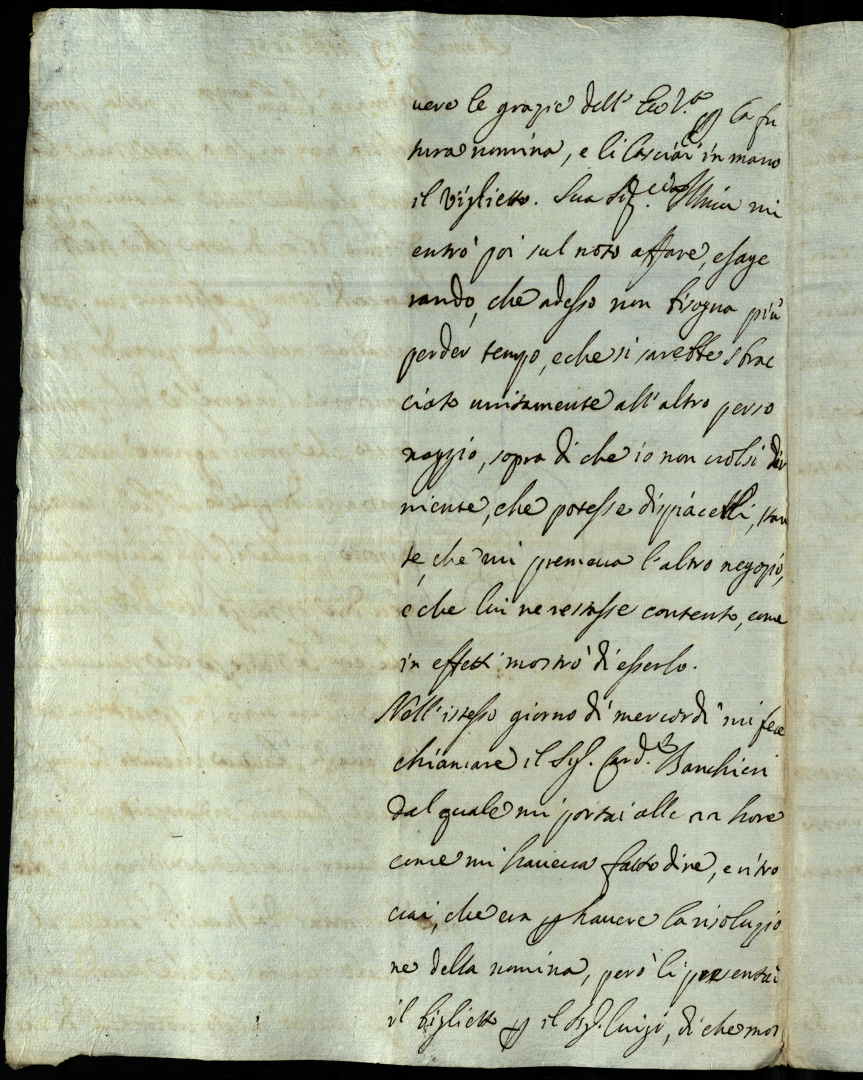 uere le grazie dell' Ecc. V.ra per la fu
tura nomina, e li lasciai in mano
il Viglietto. Sua Sig.ria Ill.ma mi
entrò poi sul noto affare, esage
rando, che adesso non bisogna più
perder tempo, e che si sarebbe sbrac
ciato unitamente all' altro perso
naggio, sopra di che io non volsi dir
niente, che potesse dispiacelli, stan
te che mi premeua l'altro negozio,
e che lui ne restasse contento, come
in effetti mostrò di esserlo.
Nell' istesso giorno di mercordì mi fece
chiamare il Sig. Card.le Banchieri
dal quale mi portai alle hore
come mi haueua fatto dire, e ritro
uai, che era per hauere la risoluzio
ne della nomina, però li presentai
il biglietto per il Sig. Luigi, di che mos